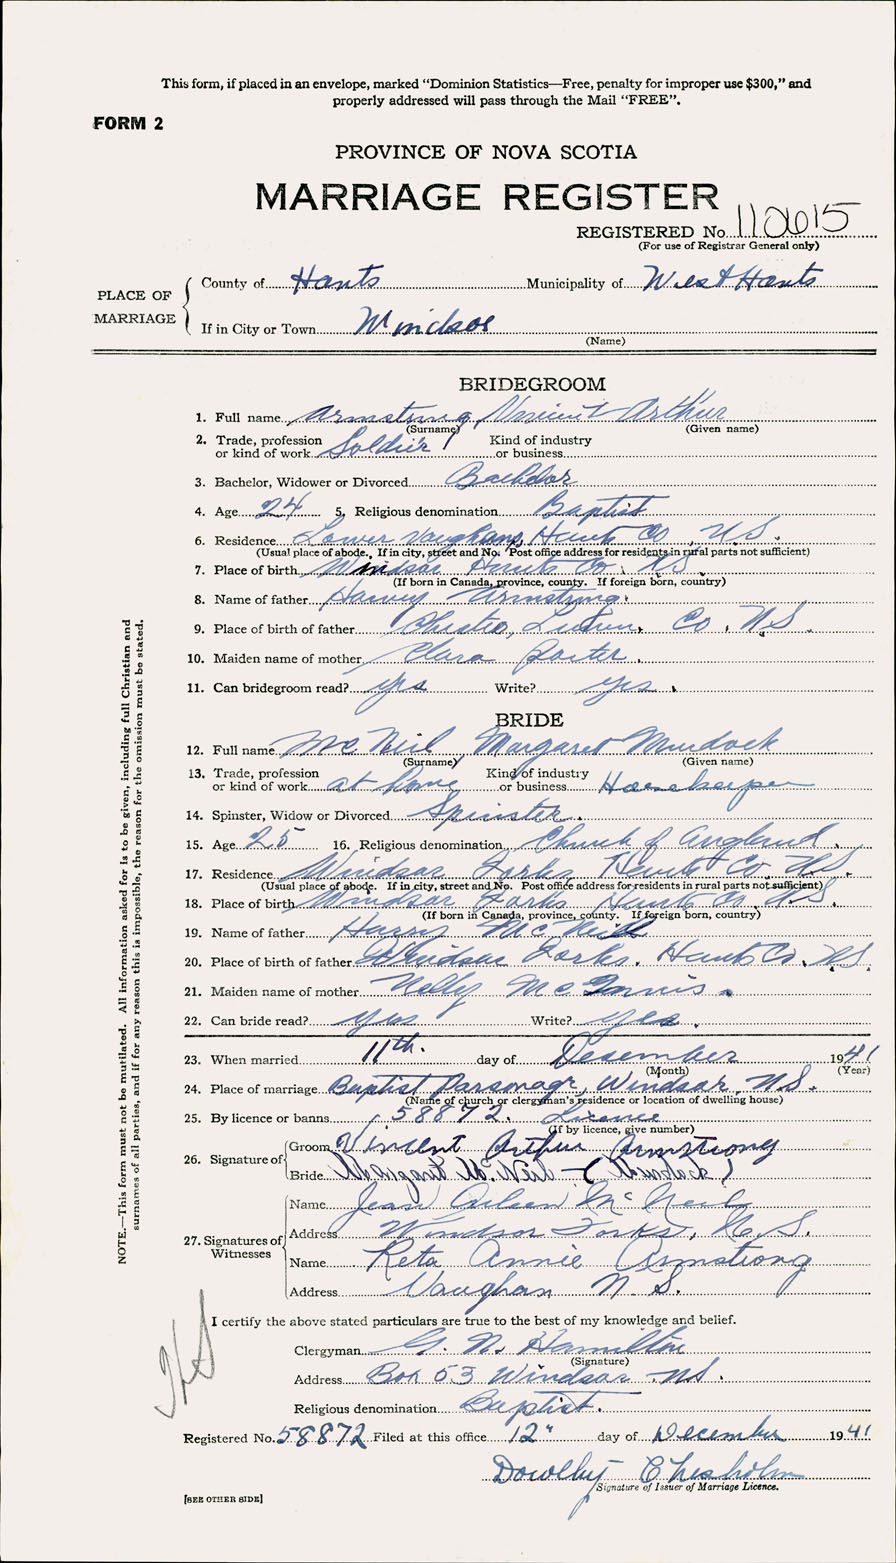 This form, if placed in an envelope, marked "Dominion Statistics—Free, penalty for improper use $300," and
properly addressed will pass through the Mail "FREE".
FORM 2
PROVINCE OF NOVA SCOTIA
MARRIAGE REGISTER
REGISTERED No. 110615
(For use of Registrar General only)
PLACE OF MARRIAGE
County of Hants Municipality of West Hants
If in City or Town Windsor
(Name)
BRIDEGROOM
1. Full name Armstrong, Vincent Arthur
(Surname) (Given name)
2. Trade, profession or kind of work Soldier Kind of industry or business
3. Bachelor, Widower or Divorced Bachelor
4. Age 24 5. Religious denomination Baptist
6. Residence Lower Vaughans, Hants Co, N.S.
(Usual place of abode. If in city, street and No. Post office address for residents in rural parts not sufficient)
7. Place of birth Windsor Hants Co. NS
(If born in Canada, province, county. If foreign born, country)
8. Name of father Harvey Armstrong
9. Place of birth of father Chester, Lunen. Co. N.S.
10. Maiden name of mother Clara Porter.
11. Can bridegroom read? yes Write? yes.
BRIDE
12. Full name McNeil Margaret Murdock
(Surname) (Given name)
13. Trade, profession or kind of work at home Kind of industry or business Housekeeper
14. Spinster, Widow or Divorced Spinster.
15. Age 25 16. Religious denomination Church of England.
17. Residence Windsor Forks Hants Co. N.S.
(Usual place of abode. If in city, street and No. Post office address for residents in rural parts not sufficient)
18. Place of birth Windsor Forks Hants Co. N.S.
(If born in Canada, province, county. If foreign born, country)
19. Name of father Harry McNeil
20. Place of birth of father Windsor Forks. Hants Co. N.S.
21. Maiden name of mother Nelly McInnis.
22. Can bride read? yes Write? yes.
23. When married 11th. day of December 1941
(Month) (Year)
24. Place of marriage Baptist Parsonage, Windsor, N.S.
(Name of church or clergyman's residence or location of dwelling house)
25. By licence or banns 58872. Licence
(If by licence, give number)
26. Signature of
Groom Vincent Arthur Armstrong
Bride Margaret McNeil (Murdock)
27. Signatures of Witnesses
Name Jean Aileen McNeil
Address Windsor Forks, N.S.
Name Reta Annie Armstrong
Address Vaughan N.S.
I certify the above stated particulars are true to the best of my knowledge and belief.
Clergyman G. N. Hamilton
(Signature)
Address Box 53 Windsor N.S.
Religious denomination Baptist.
Registered No. 58872 Filed at this office 12" day of December 1941
Chisholm
Signature of Issuer of Marriage Licence.
[SEE OTHER SIDE]
NOTE.—This form must not be mutilated. All information asked for is to be given, including full Christian and
surnames of all parties, and if for any reason this is impossible, the reason for the omission must be stated.